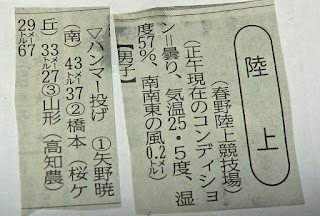 陸上
（春野陸上競技場）
（正午現在のコンディショ
ン＝曇り、気温25・5度、湿
度57%、南南東の風0.2メートル）
【男子】
▽ハンマー投げ ①矢野暁
（南）43メートル37②橋本（桜ケ
丘）33メートル27③山形（高知農）
29メートル67